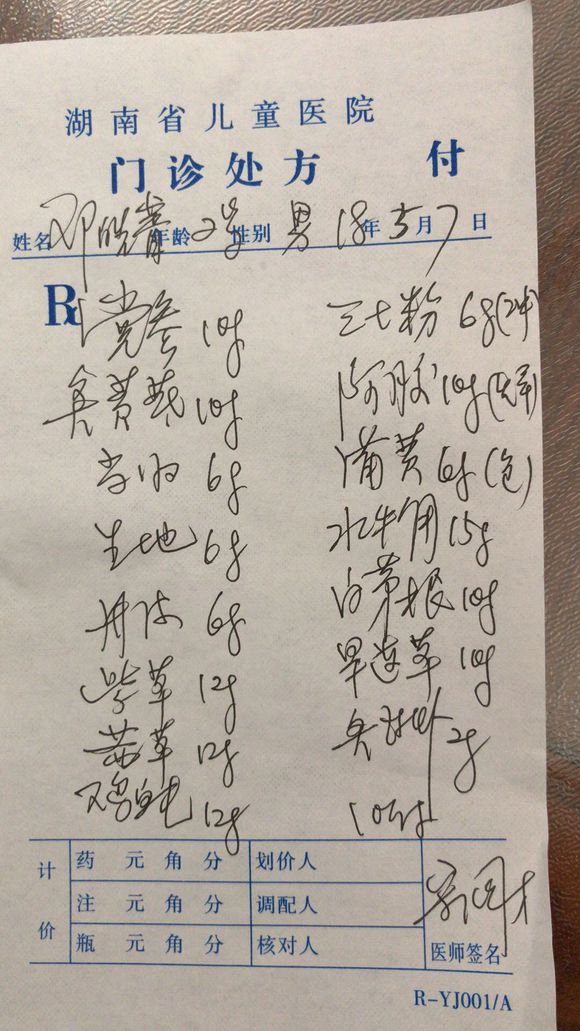 湖南省儿童医院
门诊处方 付
姓名 邓皓 年龄 2岁 性别 男 18年5月7日
R
党参 10g 三七粉 6g(冲)
炙黄芪 10g 阿胶 10g
当归 6g 蒲黄 6g(包)
生地 6g 水牛角 15g
丹皮 6g 白茅根 10g
紫草 12g 旱莲草 10g
茜草 12g 2g
12g 10付
计价 药 元 角 分 划价人
注 元 角 分 调配人
瓶 元 角 分 核对人 医师签名
R-YJ001/A